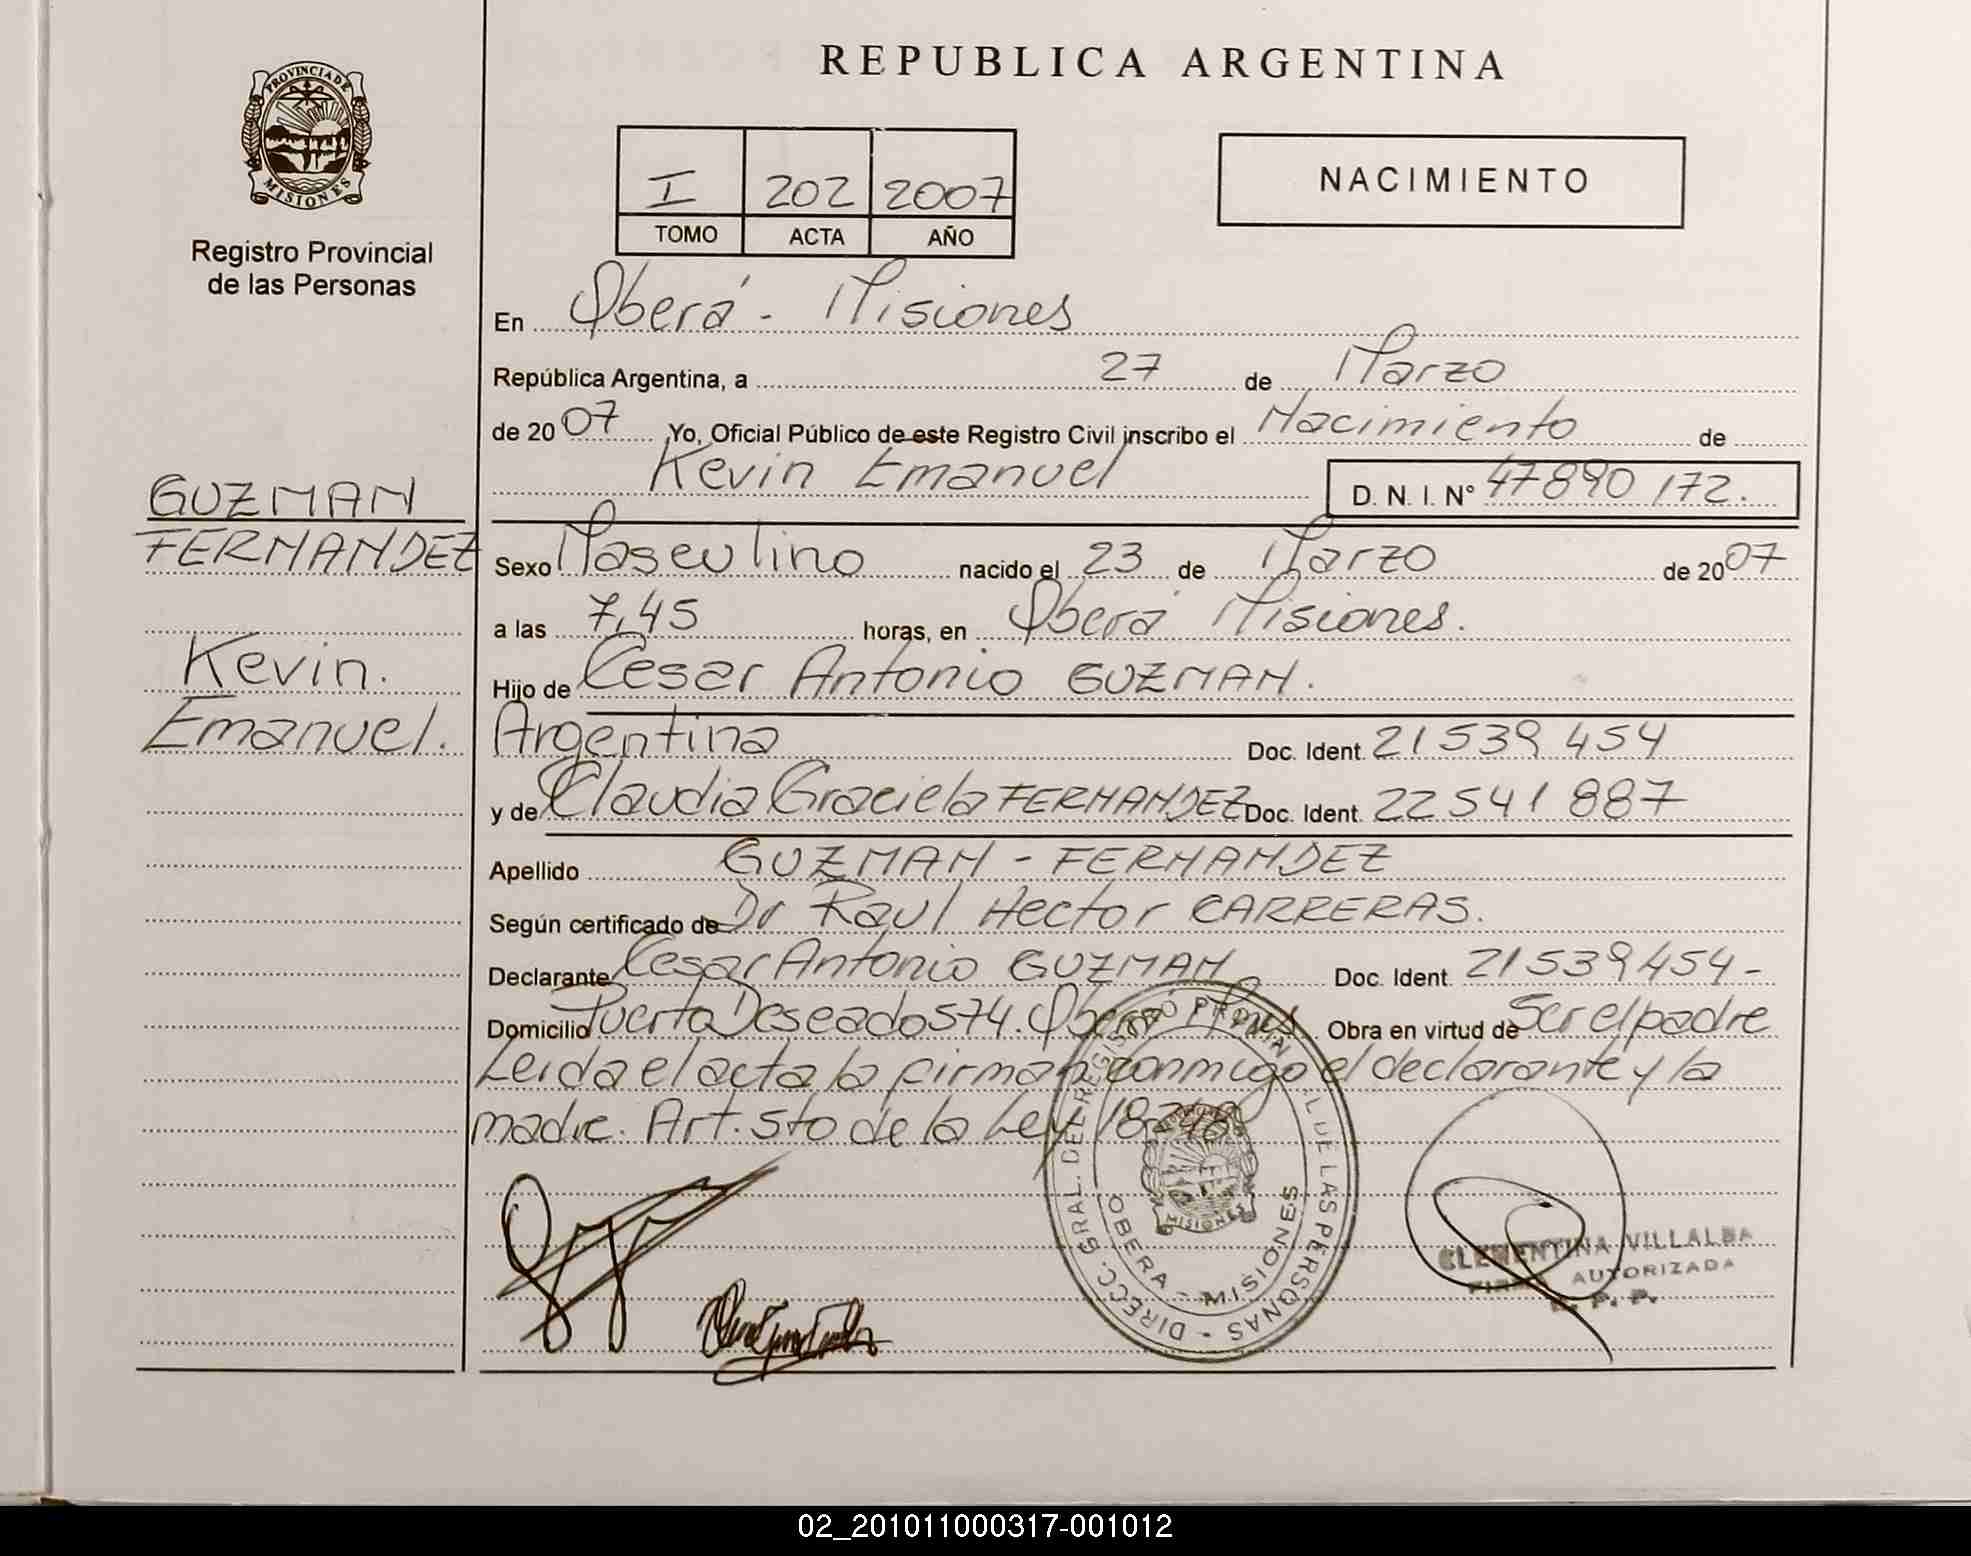 REPUBLICA ARGENTINA
PROVINCIA DE
MISIONES
Registro Provincial
de las Personas
I 202 2007
TOMO ACTA AÑO
NACIMIENTO
En Oberá - Misiones
República Argentina, a 27 de Marzo
de 20 07 Yo, Oficial Público de este Registro Civil inscribo el Nacimiento de
Kevin Emanuel D. N. I. N° 47890172.
GUZMAN
FERNANDEZ
Kevin.
Emanuel.
Sexo Masculino nacido el 23 de Marzo de 20 07
a las 7,45 horas, en Oberá Misiones.
Hijo de Cesar Antonio GUZMAN.
Argentina Doc. Ident. 21539454
y de Claudia Graciela FERNANDEZ Doc. Ident. 22541887
Apellido GUZMAN - FERNANDEZ
Según certificado de Dr Raul Hector CARRERAS.
Declarante Cesar Antonio GUZMAN Doc. Ident. 21539454-
Domicilio Puerto Deseado 574. Oberá Mnes. Obra en virtud de Ser el padre
Leida el acta la firman conmigo el declarante y la
madre. Art. 5to de la Ley 18248
DIRECC. GRAL. DEL REGISTRO PROVINCIAL DE LAS PERSONAS -
OBERA - MISIONES
MISIONES
CLEMENTINA VILLALBA
FIRMA AUTORIZADA
R. P. P.
02_201011000317-001012